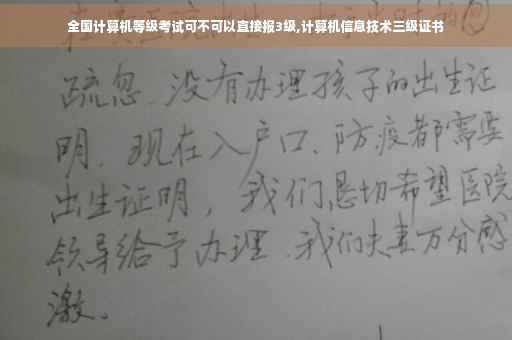 全国计算机等级考试可不可以直接报3级,计算机信息技术三级证书
疏忽、没有办理孩子的出生证
明、现在入户口、防疫都需要
出生证明，我们恳切希望医院
领导给予办理、我们夫妻万分感
激。